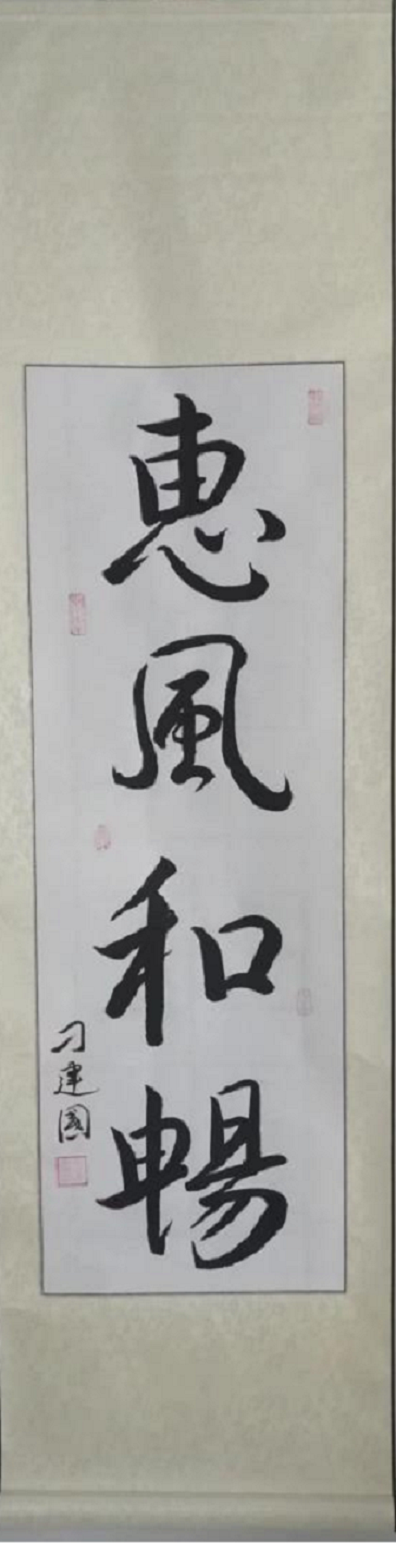 惠風和暢
刁建國